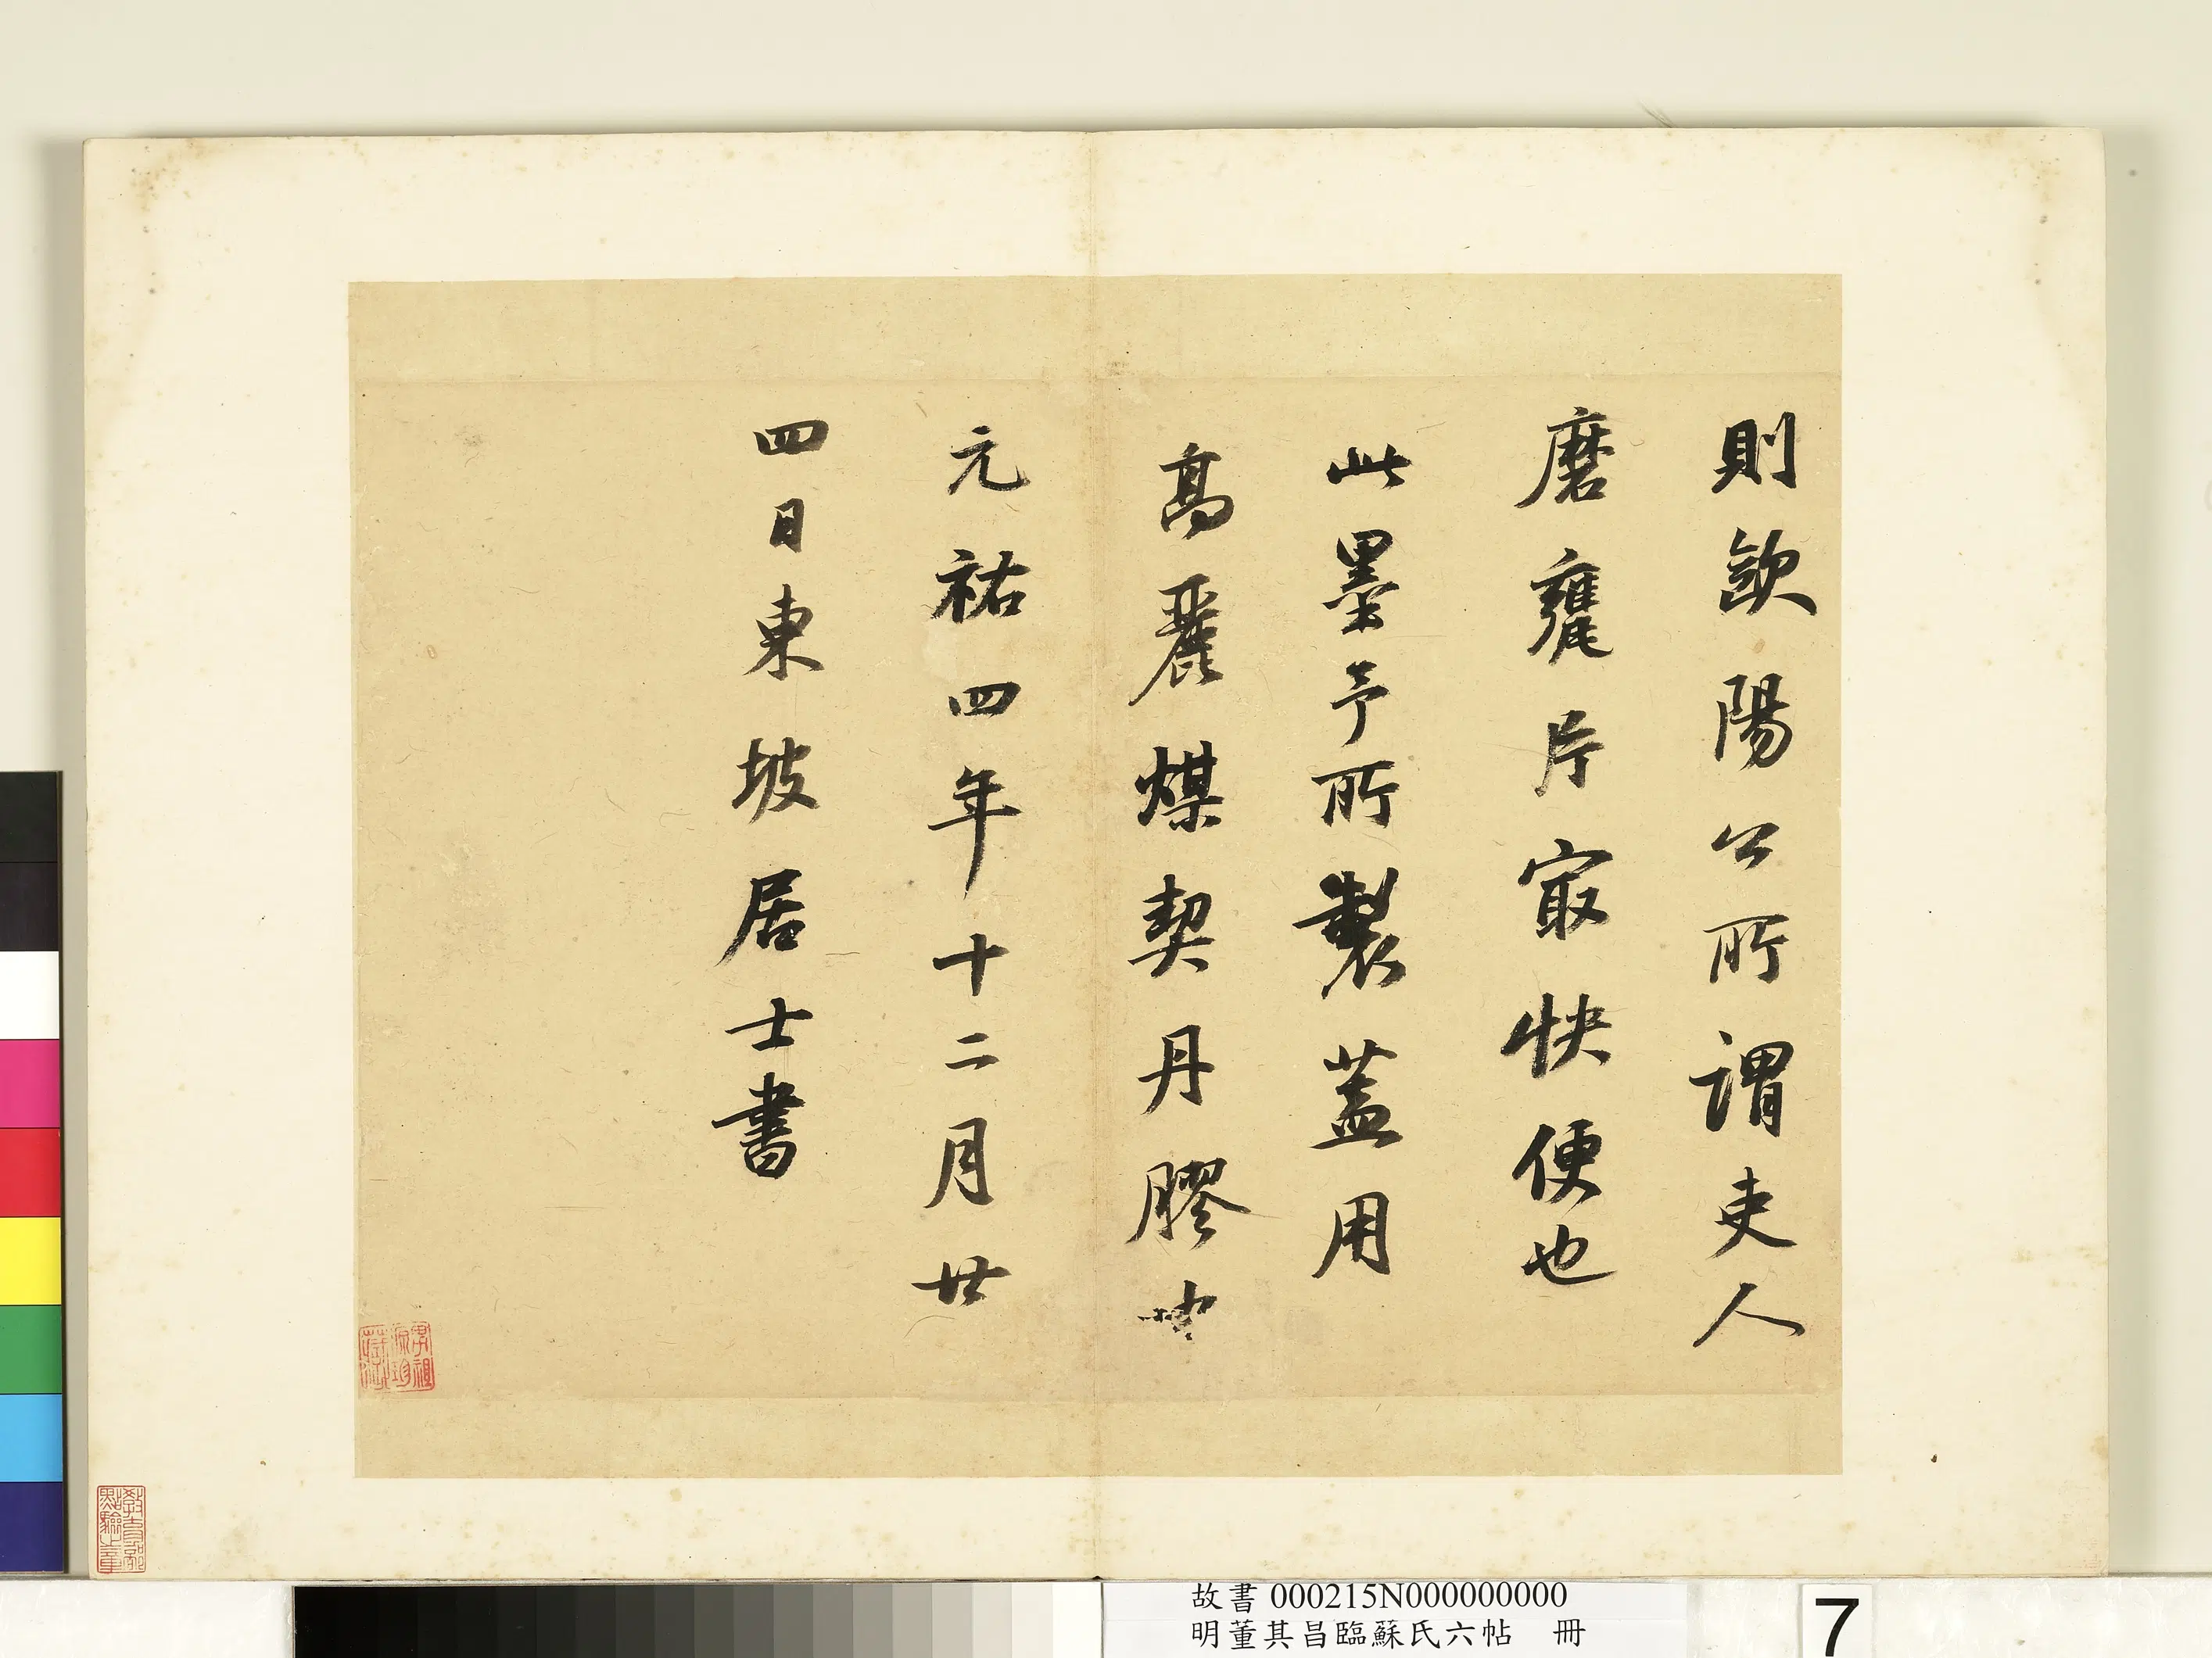 則歐陽公所謂吏人
磨甕片寂快便也
此墨予所製蓋用
高麗煤契丹膠也
元祐四年十二月廿
四日東坡居士書
教育部
點驗之章
故書 000215N000000000
明董其昌臨蘇氏六帖 冊
7